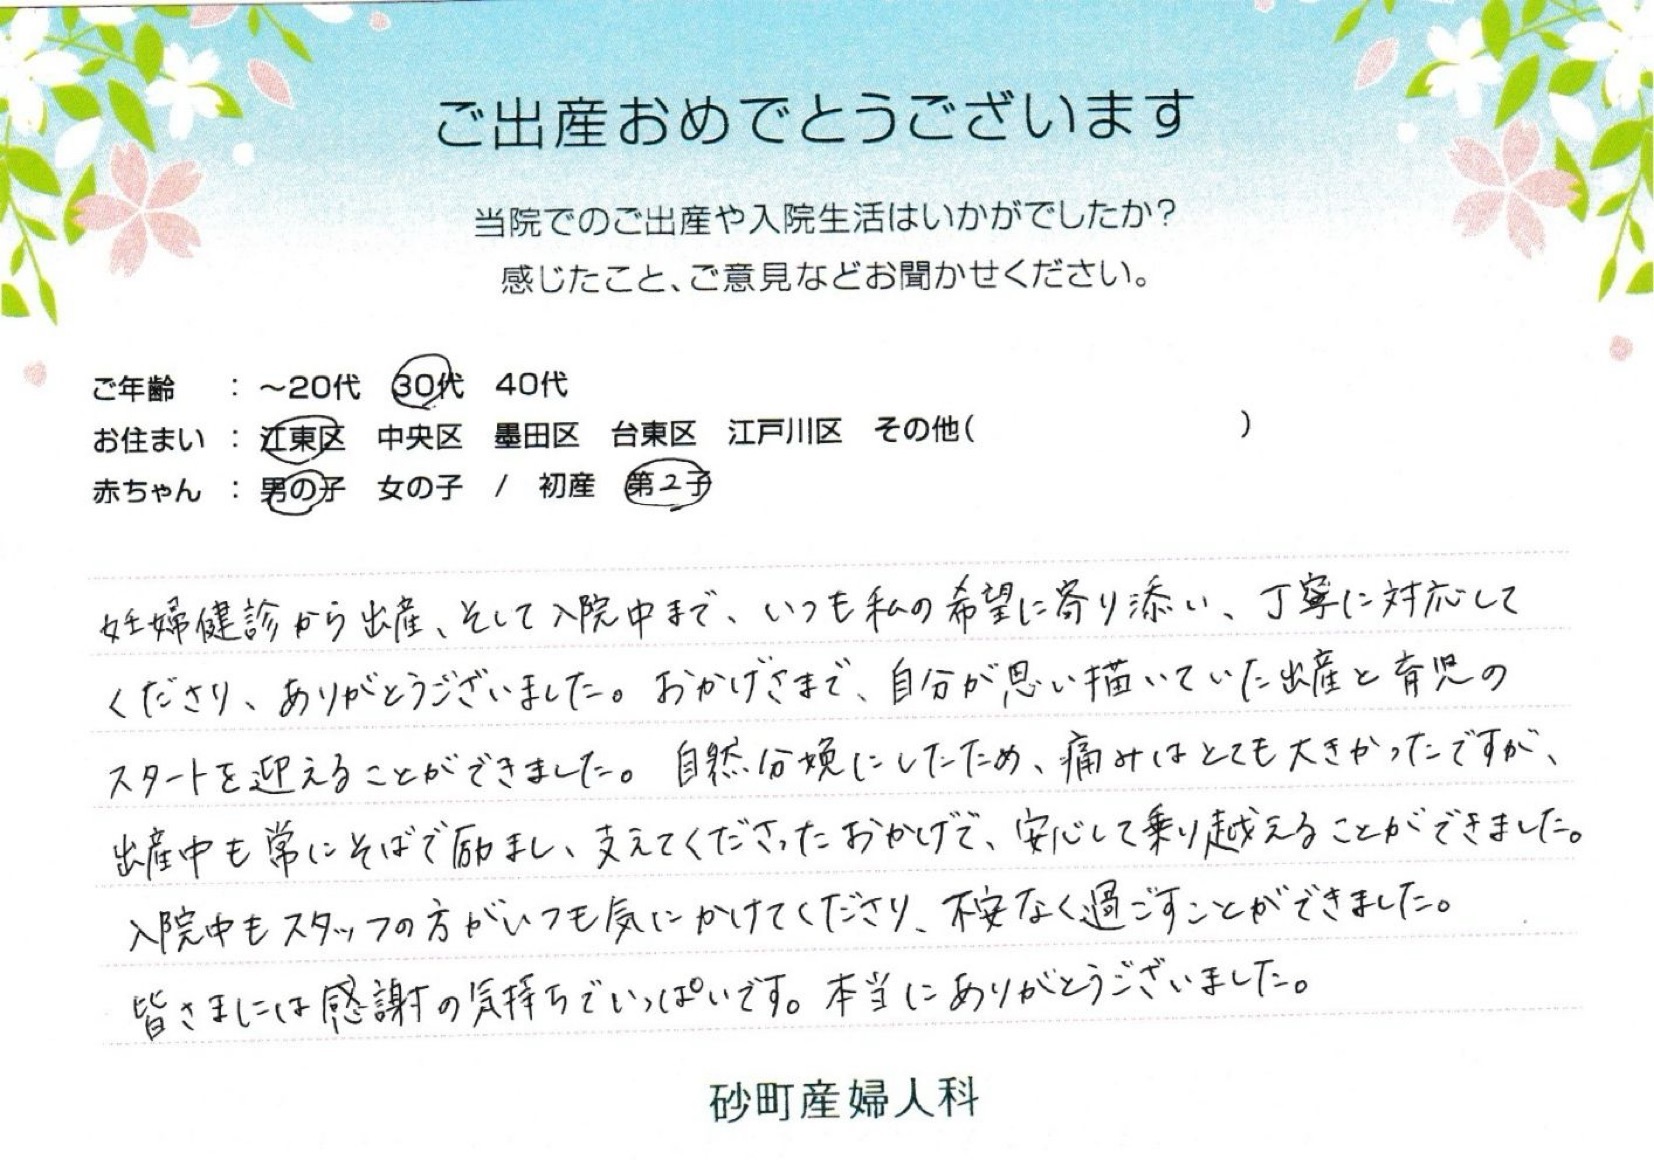 ご出産おめでとうございます
当院でのご出産や入院生活はいかがでしたか?
感じたこと、ご意見などお聞かせください。
ご年齢 : ~20代 30代 40代
お住まい : 江東区 中央区 墨田区 台東区 江戸川区 その他( )
赤ちゃん : 男の子 女の子 / 初産 第2子
妊婦健診から出産、そして入院中まで、いつも私の希望に寄り添い、丁寧に対応して
くださり、ありがとうございました。おかげさまで、自分が思い描いていた出産と育児の
スタートを迎えることができました。自然分娩にしたため、痛みはとても大きかったですが、
出産中も常にそばで励まし、支えてくださったおかげで、安心して乗り越えることができました。
入院中もスタッフの方がいつも気にかけてくださり、不安なく過ごすことができました。
皆さまには感謝の気持ちでいっぱいです。本当にありがとうございました。
砂町産婦人科